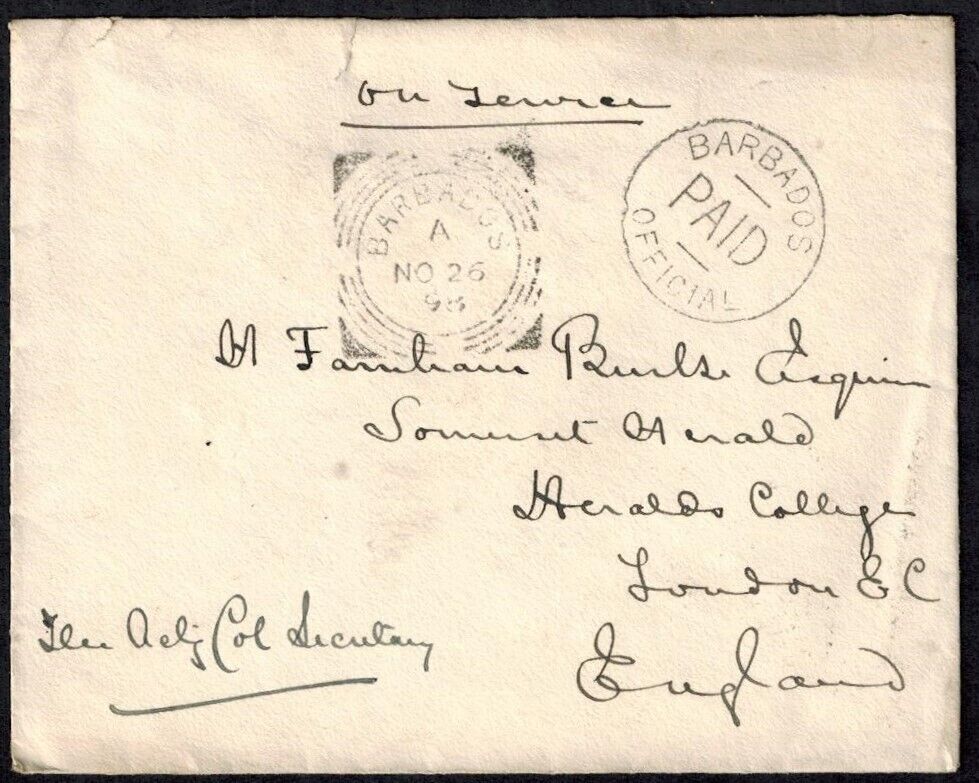 On Service
BARBADOS
A
NO 26
98
BARBADOS
PAID
OFFICIAL
H Farnham Burke Esquire
Somerset Herald
Heralds College
London E C
England
The Actg Col Secretary